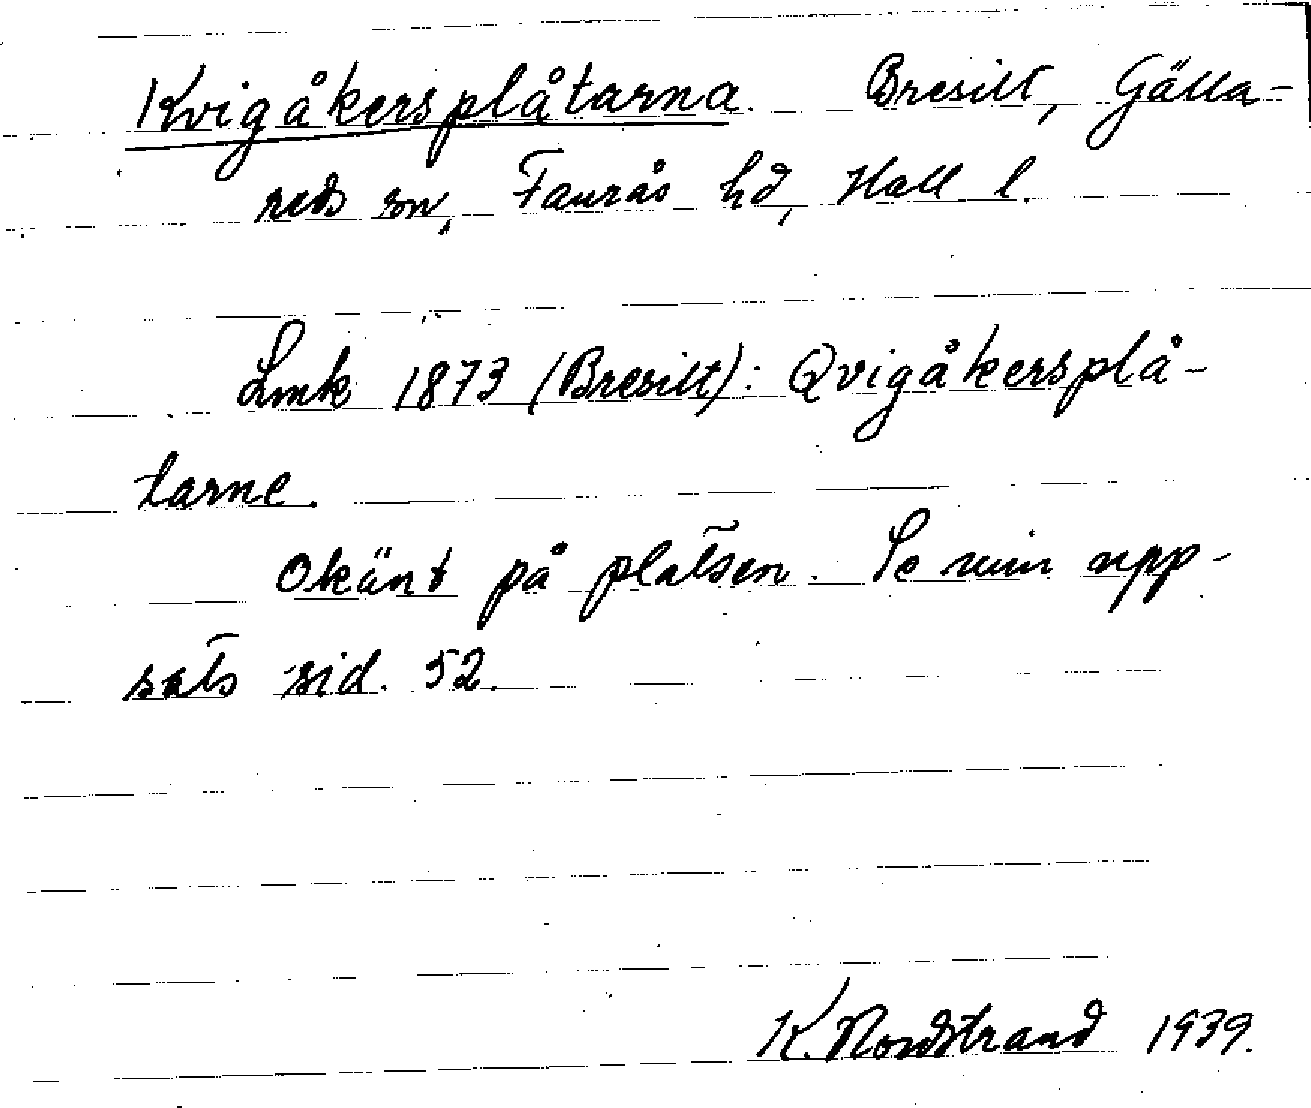 Kvigåkersplåtarna. Bresilt, Gälla-
reds sn, Faurås hd, Hall l.
Lmk 1873 (Bresilt): Qvigåkersplå-
tarne.
Okänt på platsen. Se min upp-
sats sid. 52.
K. Nordstrand 1939.